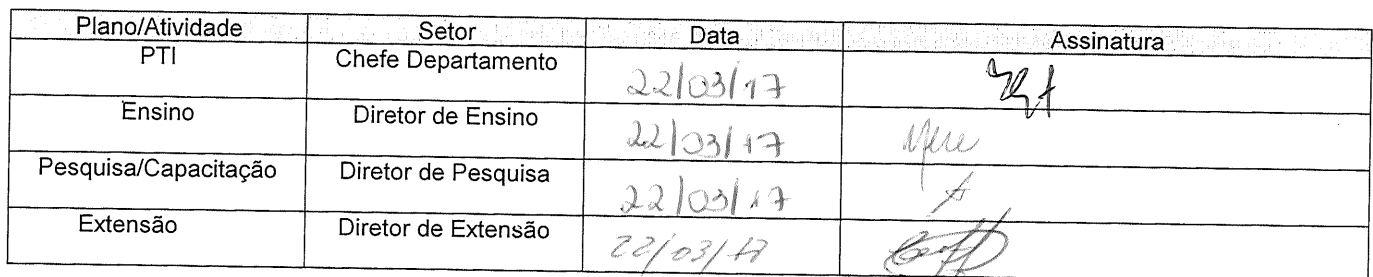 Plano/Atividade Setor Data Assinatura
PTI Chefe Departamento 22/03/17
Ensino Diretor de Ensino 22/03/17
Pesquisa/Capacitação Diretor de Pesquisa 22/03/17
Extensão Diretor de Extensão 22/03/17